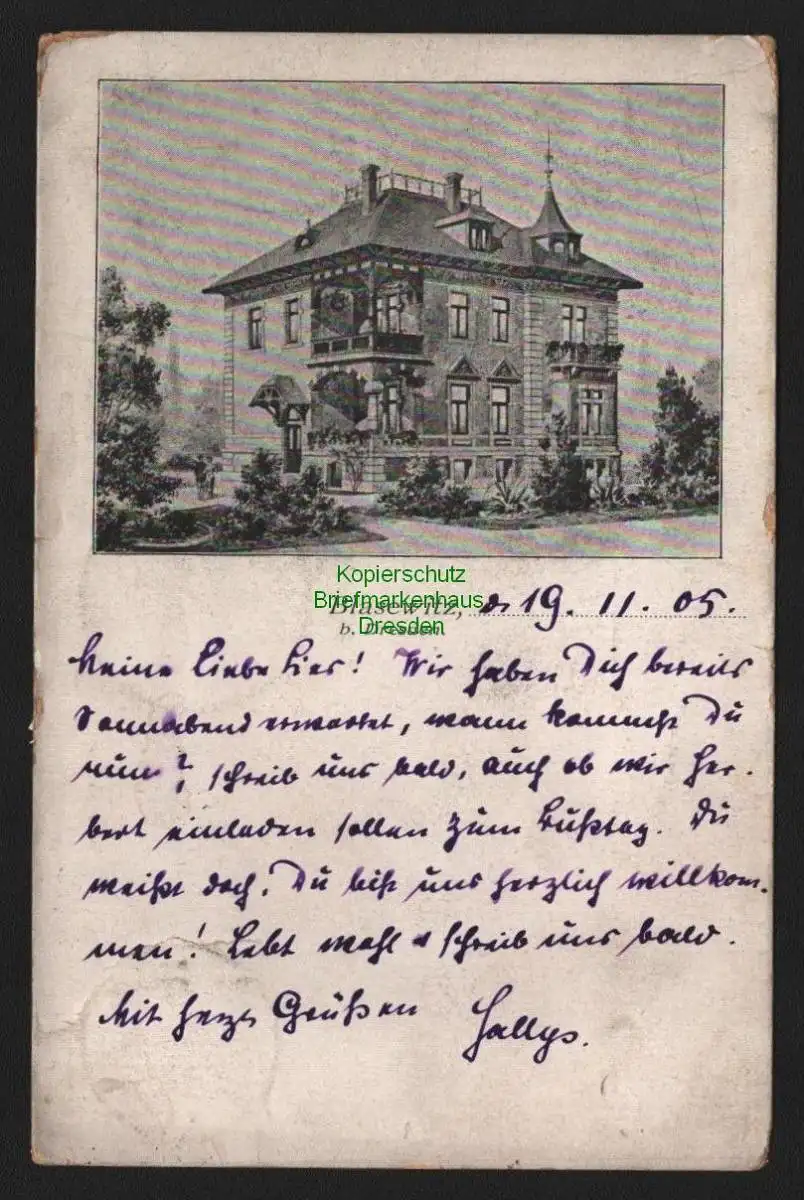 Kopierschutz
Briefmarkenhaus
Dresden
Blasewitz, d. 19. 11. 05.
b. Dresden.
Meine Liebe Lies! Wir haben Dich bereits
Sonnabend erwartet, wann kommst Du
nun? schreib uns bald, auch ob wir Her-
bert einladen sollen zum Bußtag. Du
weißt doch, Du bist uns herzlich willkom-
men! Lebt wohl & schreib uns bald.
Mit herzl Grüßen